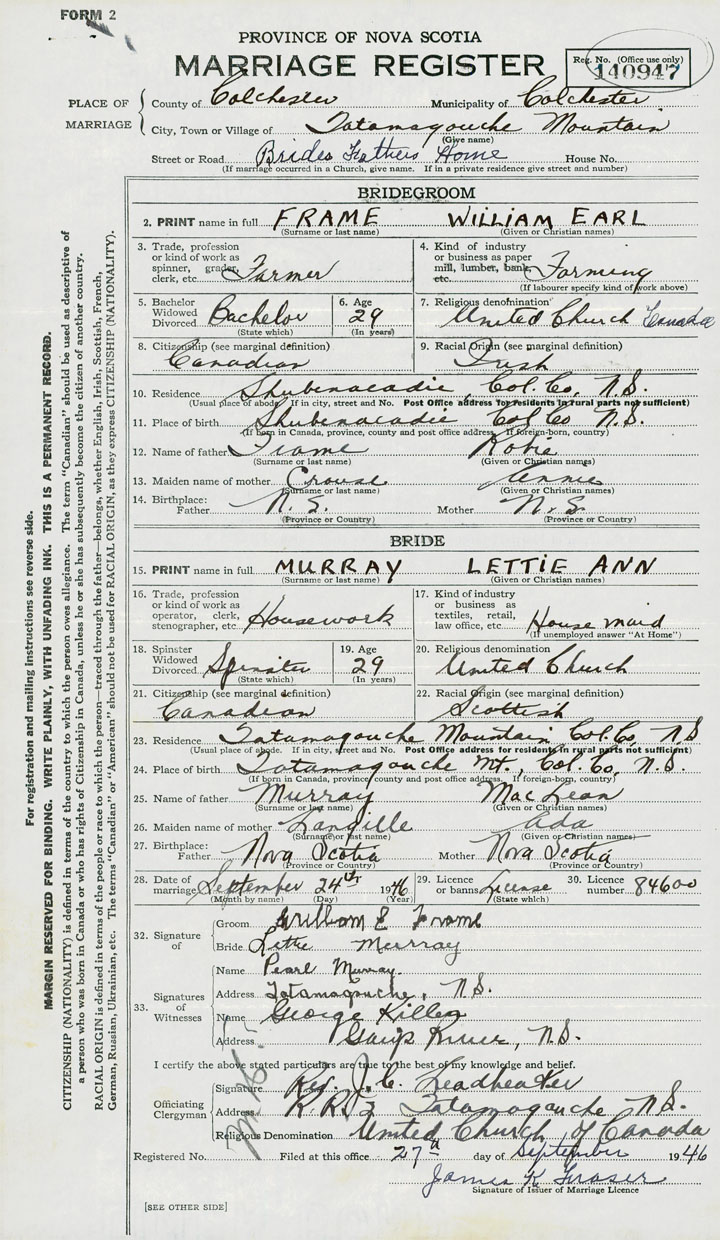 FORM 2
PROVINCE OF NOVA SCOTIA
MARRIAGE REGISTER
Reg. No. (Office use only)
140947
PLACE OF MARRIAGE
County of Colchester Municipality of Colchester
City, Town or Village of Tatamagouche Mountain
(Give name)
Street or Road Brides Fathers Home House No.
(If marriage occurred in a Church, give name. If in a private residence give street and number)
BRIDEGROOM
2. PRINT name in full FRAME WILLIAM EARL
(Surname or last name) (Given or Christian names)
3. Trade, profession or kind of work as spinner, grader, clerk, etc. Farmer
4. Kind of industry or business as paper mill, lumber, bank, etc. Farming
(If labourer specify kind of work above)
5. Bachelor Widowed Divorced Bachelor
(State which)
6. Age 29
(In years)
7. Religious denomination United Church Canada
8. Citizenship (see marginal definition) Canadian
9. Racial Origin (see marginal definition) Irish
10. Residence Shubenacadie, Col. Co, N.S.
(Usual place of abode. If in city, street and No. Post Office address for residents in rural parts not sufficient)
11. Place of birth Shubenacadie Col Co N.S.
(If born in Canada, province, county and post office address. If foreign-born, country)
12. Name of father Frame
(Surname or last name) (Given or Christian names)
13. Maiden name of mother Crouse Annie
(Surname or last name) (Given or Christian names)
14. Birthplace: Father N.S. Mother N.S.
(Province or Country) (Province or Country)
BRIDE
15. PRINT name in full MURRAY LETTIE ANN
(Surname or last name) (Given or Christian names)
16. Trade, profession or kind of work as operator, clerk, stenographer, etc. Housework
17. Kind of industry or business as textiles, retail, law office, etc. House maid
(If unemployed answer "At Home")
18. Spinster Widowed Divorced Spinster
(State which)
19. Age 29
(In years)
20. Religious denomination United Church
21. Citizenship (see marginal definition) Canadian
22. Racial Origin (see marginal definition) Scottish
23. Residence Tatamagouche Mountain Col. Co, N.S
(Usual place of abode. If in city, street and No. Post Office address for residents in rural parts not sufficient)
24. Place of birth Tatamagouche Mt., Col. Co, N.S.
(If born in Canada, province county and post office address. If foreign-born, country)
25. Name of father Murray MacLean
(Surname or last name) (Given or Christian names)
26. Maiden name of mother Langille Ada
(Surname or last name) (Given or Christian names)
27. Birthplace: Father Nova Scotia Mother Nova Scotia
(Province or Country) (Province or Country)
28. Date of marriage September 24th 1946
(Month by name) (Day) (Year)
29. Licence or banns License
(State which)
30. Licence number 84600
32. Signature of
Groom William E Frame
Bride Lettie Murray
33. Signatures of Witnesses
Name Pearl Murray.
Address Tatamagouche, N.S.
Name George
Address N.S.
I certify the above stated particulars are true to the best of my knowledge and belief.
Officiating Clergyman
Signature Rev. J. C. Leadbeater
Address R.R. 2 Tatamagouche N.S.
Religious Denomination United Church of Canada
Registered No. Filed at this office 27th day of September 1946
James K Fraser
Signature of Issuer of Marriage Licence
[SEE OTHER SIDE]
For registration and mailing instructions see reverse side.
MARGIN RESERVED FOR BINDING. WRITE PLAINLY, WITH UNFADING INK. THIS IS A PERMANENT RECORD.
CITIZENSHIP (NATIONALITY) is defined in terms of the country to which the person owes allegiance. The term "Canadian" should be used as descriptive of
a person who was born in Canada or who has rights of Citizenship in Canada, unless he or she has subsequently become the citizen of another country.
RACIAL ORIGIN is defined in terms of the people or race to which the person—traced through the father—belongs, whether English, Irish, Scottish, French,
German, Russian, Ukrainian, etc. The terms "Canadian" or "American" should not be used for RACIAL ORIGIN, as they express CITIZENSHIP (NATIONALITY).